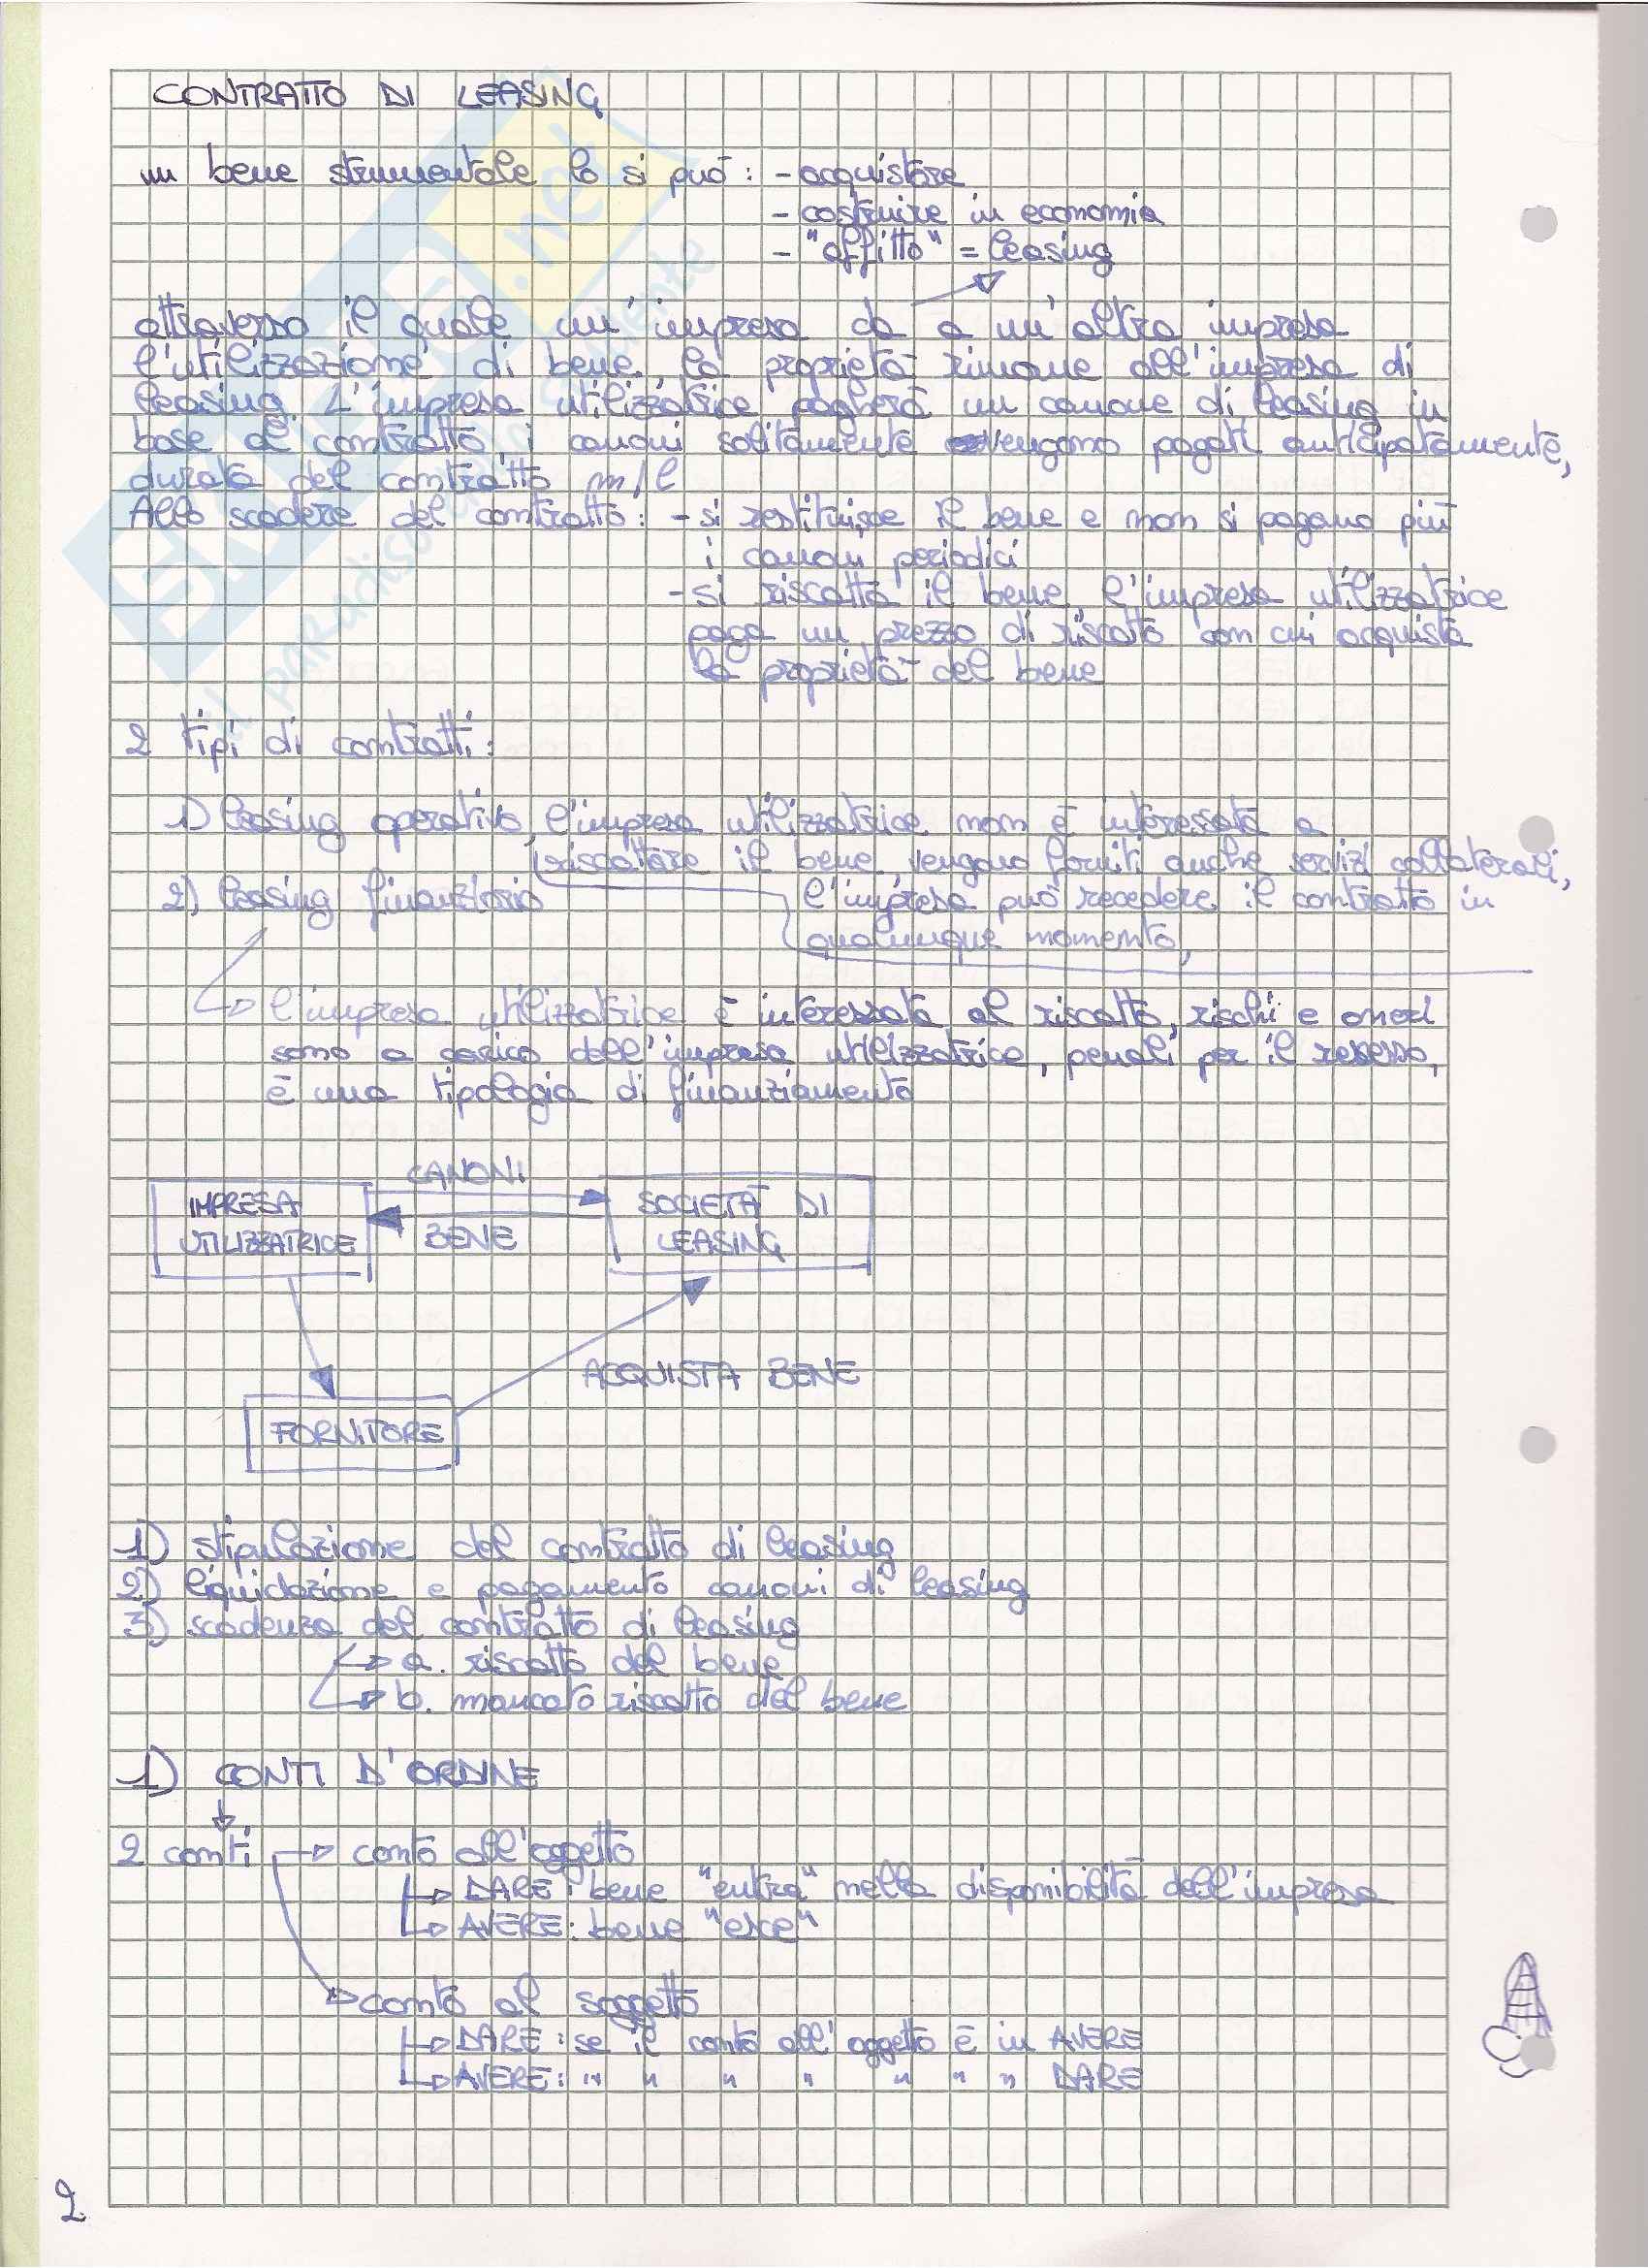 CONTRATTO DI LEASING
un bene strumentale lo si può: - acquistare
- costruire in economia
- "affitto" = leasing
attraverso il quale un'impresa da a un'altra impresa
l'utilizzazione di bene, la proprietà rimane all'impresa di
leasing. L'impresa utilizzatrice pagherà un canone di leasing in
base al contratto, i canoni solitamente vengono pagati anticipatamente,
durata del contratto m/l
Allo scadere del contratto: - si restituisce il bene e non si pagano più
i canoni periodici
- si riscatta il bene, l'impresa utilizzatrice
paga un prezzo di riscatto con cui acquista
la proprietà del bene
2 tipi di contratti:
1) leasing operativo, l'impresa utilizzatrice non è interessata a
riscattare il bene, vengono forniti anche servizi collaterali,
2) leasing finanziario l'impresa può recedere il contratto in
qualunque momento,
l'impresa utilizzatrice è interessata al riscatto, rischi e oneri
sono a carico dell'impresa utilizzatrice, penali per il recesso,
è una tipologia di finanziamento
CANONI
IMPRESA UTILIZZATRICE
BENE
SOCIETÀ DI LEASING
ACQUISTA BENE
FORNITORE
1) stipulazione del contratto di leasing
2) liquidazione e pagamento canoni di leasing
3) scadenza del contratto di leasing
a. riscatto del bene
b. mancato riscatto del bene
1) CONTI D'ORDINE
2 conti conto all'oggetto
DARE: bene "entra" nella disponibilità dell'impresa
AVERE: bene "esce"
conto al soggetto
DARE: se il conto all'oggetto è in AVERE
AVERE: " " " " " " " DARE
2.
SKUOLA.net
il paradiso dello studente